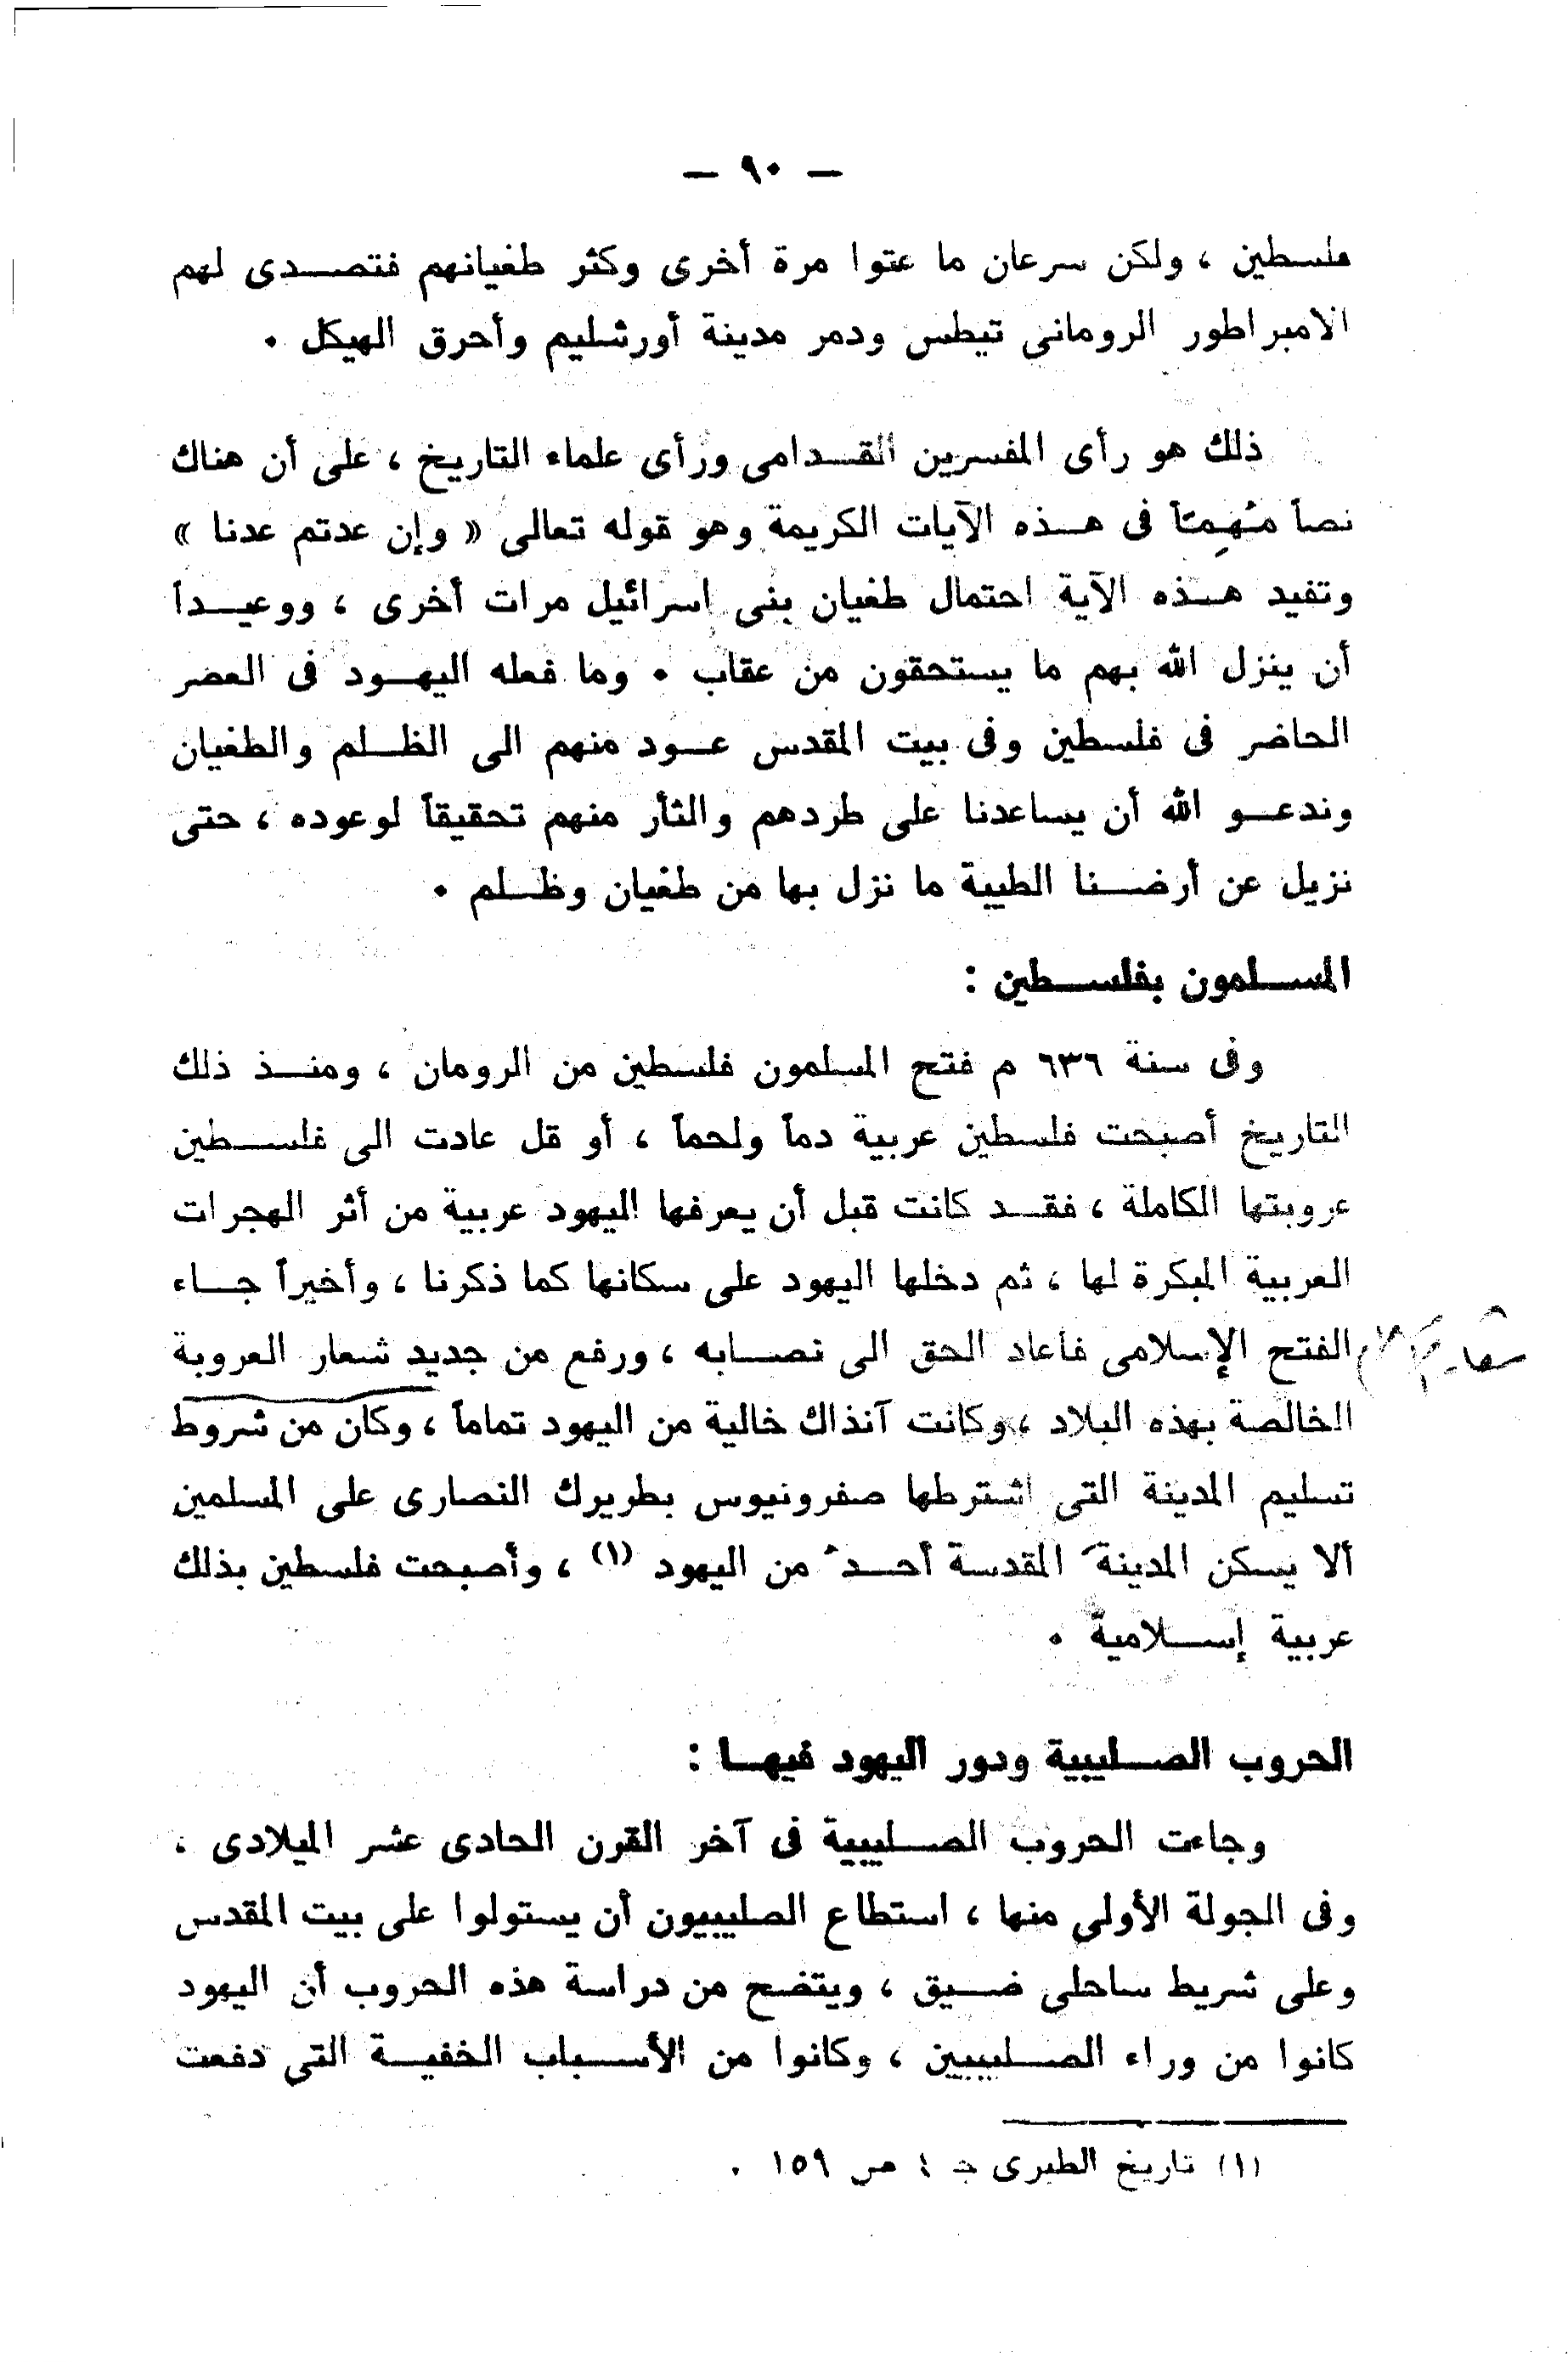 — ٩٠ —
فلسطين ، ولكن سرعان ما عتوا مرة أخرى وكثر طغيانهم فتصدى لهم
الامبراطور الرومانى تيطس ودمر مدينة أورشليم وأحرق الهيكل .
ذلك هو رأى المفسرين القدامى ورأى علماء التاريخ ، على أن هناك
نصاً مُهِمّاً فى هذه الآيات الكريمة وهو قوله تعالى « وإن عدتم عدنا »
وتفيد هذه الآية احتمال طغيان بنى اسرائيل مرات أخرى ، ووعيداً
أن ينزل الله بهم ما يستحقون من عقاب . وما فعله اليهود فى العصر
الحاضر فى فلسطين وفى بيت المقدس عود منهم الى الظلم والطغيان
وندعو الله أن يساعدنا على طردهم والثأر منهم تحقيقاً لوعوده ، حتى
نزيل عن أرضنا الطيبة ما نزل بها من طغيان وظلم .
المسلمون بفلسطين :
وفى سنة ٦٣٦ م فتح المسلمون فلسطين من الرومان ، ومنذ ذلك
التاريخ أصبحت فلسطين عربية دماً ولحماً ، أو قل عادت الى فلسطين
عروبتها الكاملة ، فقد كانت قبل أن يعرفها اليهود عربية من أثر الهجرات
العربية المبكرة لها ، ثم دخلها اليهود على سكانها كما ذكرنا ، وأخيراً جاء
الفتح الإسلامى فأعاد الحق الى نصابه ، ورفع من جديد شعار العروبة
الخالصة بهذه البلاد ، وكانت آنذاك خالية من اليهود تماماً ، وكان من شروط
تسليم المدينة التى اشترطها صفرونيوس بطريرك النصارى على المسلمين
ألا يسكن المدينةَ المقدسة أحدٌ من اليهود (١) ، وأصبحت فلسطين بذلك
عربية إسلامية .
الحروب الصليبية ودور اليهود فيها :
وجاءت الحروب الصليبية فى آخر القرن الحادى عشر الميلادى ،
وفى الجولة الأولى منها ، استطاع الصليبيون أن يستولوا على بيت المقدس
وعلى شريط ساحلى ضيق ، ويتضح من دراسة هذه الحروب أن اليهود
كانوا من وراء الصليبيين ، وكانوا من الأسباب الخفية التى دفعت
(١) تاريخ الطبرى ج ٤ ص ١٥٩ .